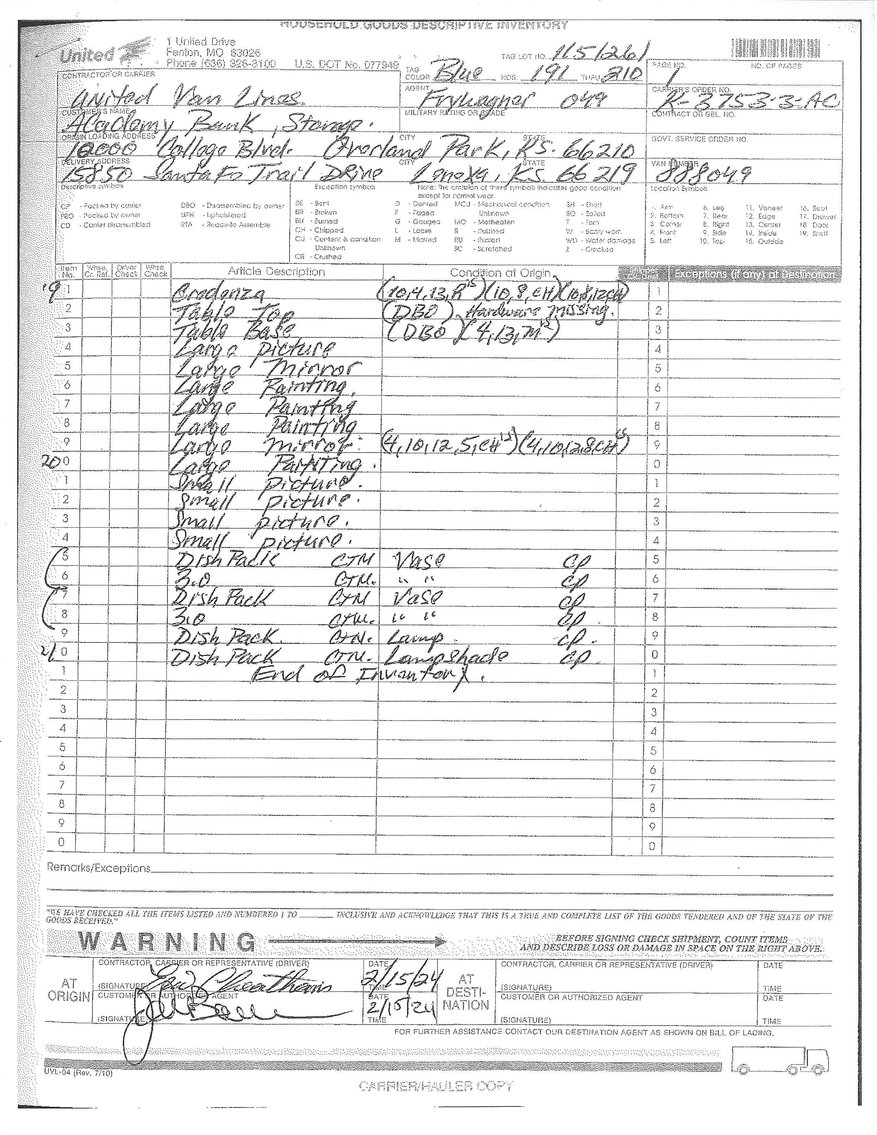 HOUSEHOLD GOODS DESCRIPTIVE INVENTORY
United
1 United Drive
Fenton, MO 63026
Phone (636) 326-3100 U.S. DOT No. 077949
TAG LOT NO. 1151261
TAG COLOR Blue NOS. 191 THRU 210
PAGE NO. 1 NO. OF PAGES
CONTRACTOR OR CARRIER
United Van Lines.
AGENT
Frywagner 049
CARRIER'S ORDER NO.
K-3753-3-AC
CUSTOMER'S NAME
Academy Bank, Storage.
MILITARY RATING OR GRADE
CONTRACT OR GBL NO.
ORIGIN LOADING ADDRESS CITY STATE
10000 College Blvd. Overland Park, KS. 66210
GOVT. SERVICE ORDER NO.
DELIVERY ADDRESS CITY STATE
15850 Santa Fe Trail Drive Lenexa, KS. 66219
VAN NUMBER
888049
Descriptive symbols
CP - Packed by carrier
PBO - Packed by owner
CD - Carrier disassembled
DBO - Disassembled by owner
UPH - Upholstered
RTA - Ready-to Assemble
Exception symbols
BE - Bent
BR - Broken
BU - Burned
CH - Chipped
CU - Contents & condition Unknown
CR - Crushed
Note: The omission of these symbols indicates good condition except for normal wear.
D - Dented
F - Faded
G - Gouged
L - Loose
M - Marred
MCU - Mechanical condition Unknown
MO - Motheaten
R - Rubbed
RU - Rusted
SC - Scratched
SH - Short
SO - Soiled
T - Torn
W - Badly worn
WD - Water damage
Z - Cracked
Location Symbols
1. Arm
2. Bottom
3. Corner
4. Front
5. Left
6. Leg
7. Rear
8. Right
9. Side
10. Top
11. Veneer
12. Edge
13. Center
14. Inside
15. Outside
16. Seat
17. Drawer
18. Door
19. Shelf
Item No. Whse. Cr. Ref. Driver Check Whse Check Article Description Condition at Origin Exceptions (if any) at Destination
19 1 Credenza (10,4,13,R15)(10,8,CH)(10,8,12CH) 1
2 Table Top (DBO) Hardware missing. 2
3 Table Base (DBO)(4,13,M15) 3
4 Large picture 4
5 Large Mirror 5
6 Large Painting. 6
7 Large Painting 7
8 Large Painting 8
9 Large Mirror. (4,10,12,5,CH15)(4,10,12,8,CH15) 9
20 0 Large Painting. 0
1 Small picture. 1
2 Small picture. 2
3 Small picture. 3
4 Small picture. 4
5 Dish Pack CTN Vase CP 5
6 3.0 CTN. " " CP 6
7 Dish Pack CTN Vase CP 7
8 3.0 CTN. " " CP 8
9 Dish Pack. CTN. Lamp. CP. 9
21 0 Dish Pack CTN. Lampshade CP. 0
1 End of Inventory. 1
2 2
3 3
4 4
5 5
6 6
7 7
8 8
9 9
0 0
Remarks/Exceptions
"WE HAVE CHECKED ALL THE ITEMS LISTED AND NUMBERED 1 TO ______ INCLUSIVE AND ACKNOWLEDGE THAT THIS IS A TRUE AND COMPLETE LIST OF THE GOODS TENDERED AND OF THE STATE OF THE GOODS RECEIVED."
WARNING
BEFORE SIGNING CHECK SHIPMENT, COUNT ITEMS
AND DESCRIBE LOSS OR DAMAGE IN SPACE ON THE RIGHT ABOVE.
AT ORIGIN
CONTRACTOR, CARRIER OR REPRESENTATIVE (DRIVER) DATE
(SIGNATURE) 2/15/24
CUSTOMER OR AUTHORIZED AGENT DATE
(SIGNATURE) 2/15/24 TIME
AT DESTINATION
CONTRACTOR, CARRIER OR REPRESENTATIVE (DRIVER) DATE
(SIGNATURE) TIME
CUSTOMER OR AUTHORIZED AGENT DATE
(SIGNATURE) TIME
FOR FURTHER ASSISTANCE CONTACT OUR DESTINATION AGENT AS SHOWN ON BILL OF LADING.
UVL-04 (Rev. 7/10)
CARRIER/HAULER COPY